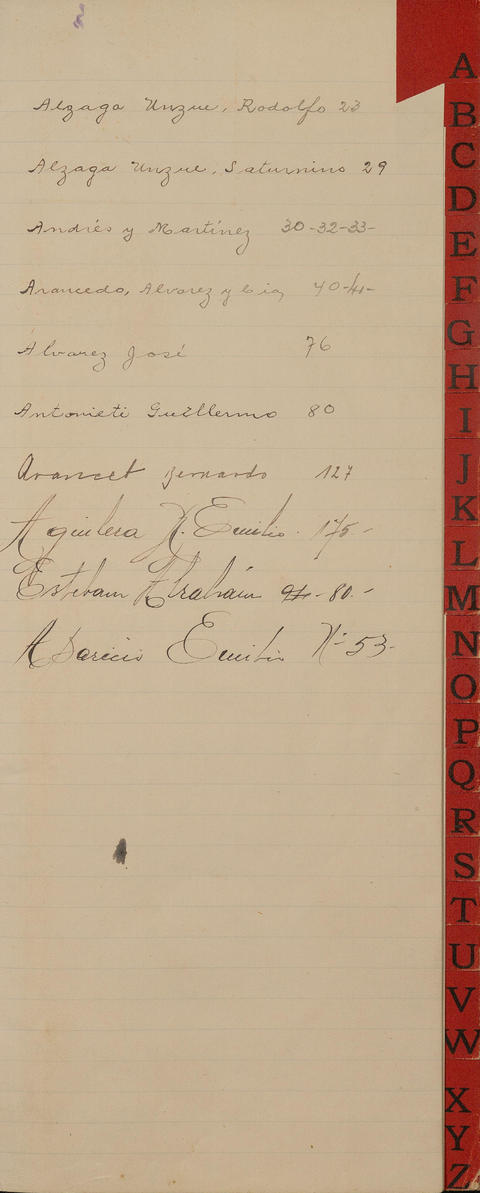 Alzaga Unzue, Rodolfo 23
Alzaga Unzue, Saturnino 29
Andrés y Martínez 30-32-33-
Arancedo, Alvarez y Cia, 40-41-
Álvarez José 76
Antonieti Guillermo 80
Arancet Bernardo 127
Aguilera N. Emilio. 175.-
Esteban Abrahám 80.-
Emilio Nº 53-
A
B
C
D
E
F
G
H
I
J
K
L
M
N
O
P
Q
R
S
T
U
V
W
X
Y
Z